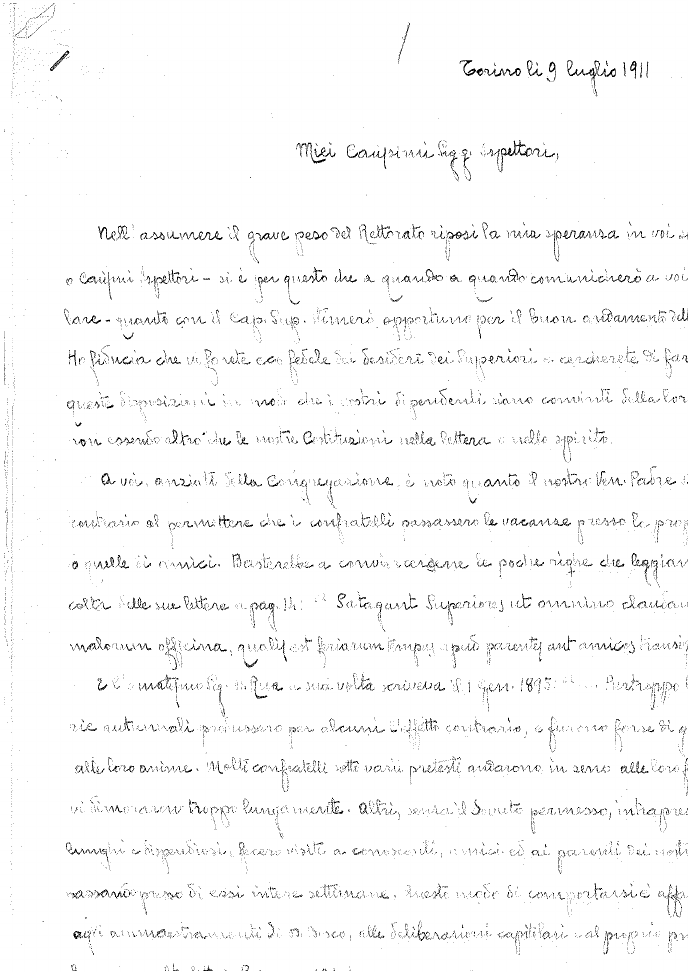 Torino li 9 luglio 1911
Miei Carissimi Sigg. Ispettori,
Nell' assumere il grave peso del Rettorato riposi la mia speranza in voi
o Carissimi Ispettori - si è per questo che a quando a quando comunicherò a voi
lare - quanto con il Cap. Sup. stimerò opportuno per il buon andamento
Ho fiducia che vi farete eco fedele dei desideri dei Superiori e cercherete di far
queste disposizioni in modo che i vostri dipendenti siano convinti della
non essendo altro che le nostre Costituzioni nella lettera e nello spirito.
A voi, anziati della Congregazione, è noto quanto il nostro Ven. Padre
contrario al permettere che i confratelli passassero le vacanze presso le
o quelle di amici. Basterebbe a convincersene le poche righe che
colta delle sue lettere a pag. 14: " Satagant Superiores ut omnino
malorum officina, qualis est feriarum tempus apud parentes aut amicos
E l'amatissimo Sig. D. Rua a sua volta scriveva il 1 Gen. 1895: " ... Purtroppo
rie autunnali produssero per alcuni l'effetto contrario, e furono forse di
alle loro anime. Molti confratelli sotto varii pretesti andarono in seno alle loro
vi dimorarono troppo lungamente. Altri, senza il dovuto permesso,
lunghi e dispendiosi, fecero visite a conoscenti, amici ed ai parenti dei nostri
passando presso di essi intere settimane. Questo modo di comportarsi è
agli ammaestramenti di D. Bosco, alle deliberazioni capitolari e al proprio